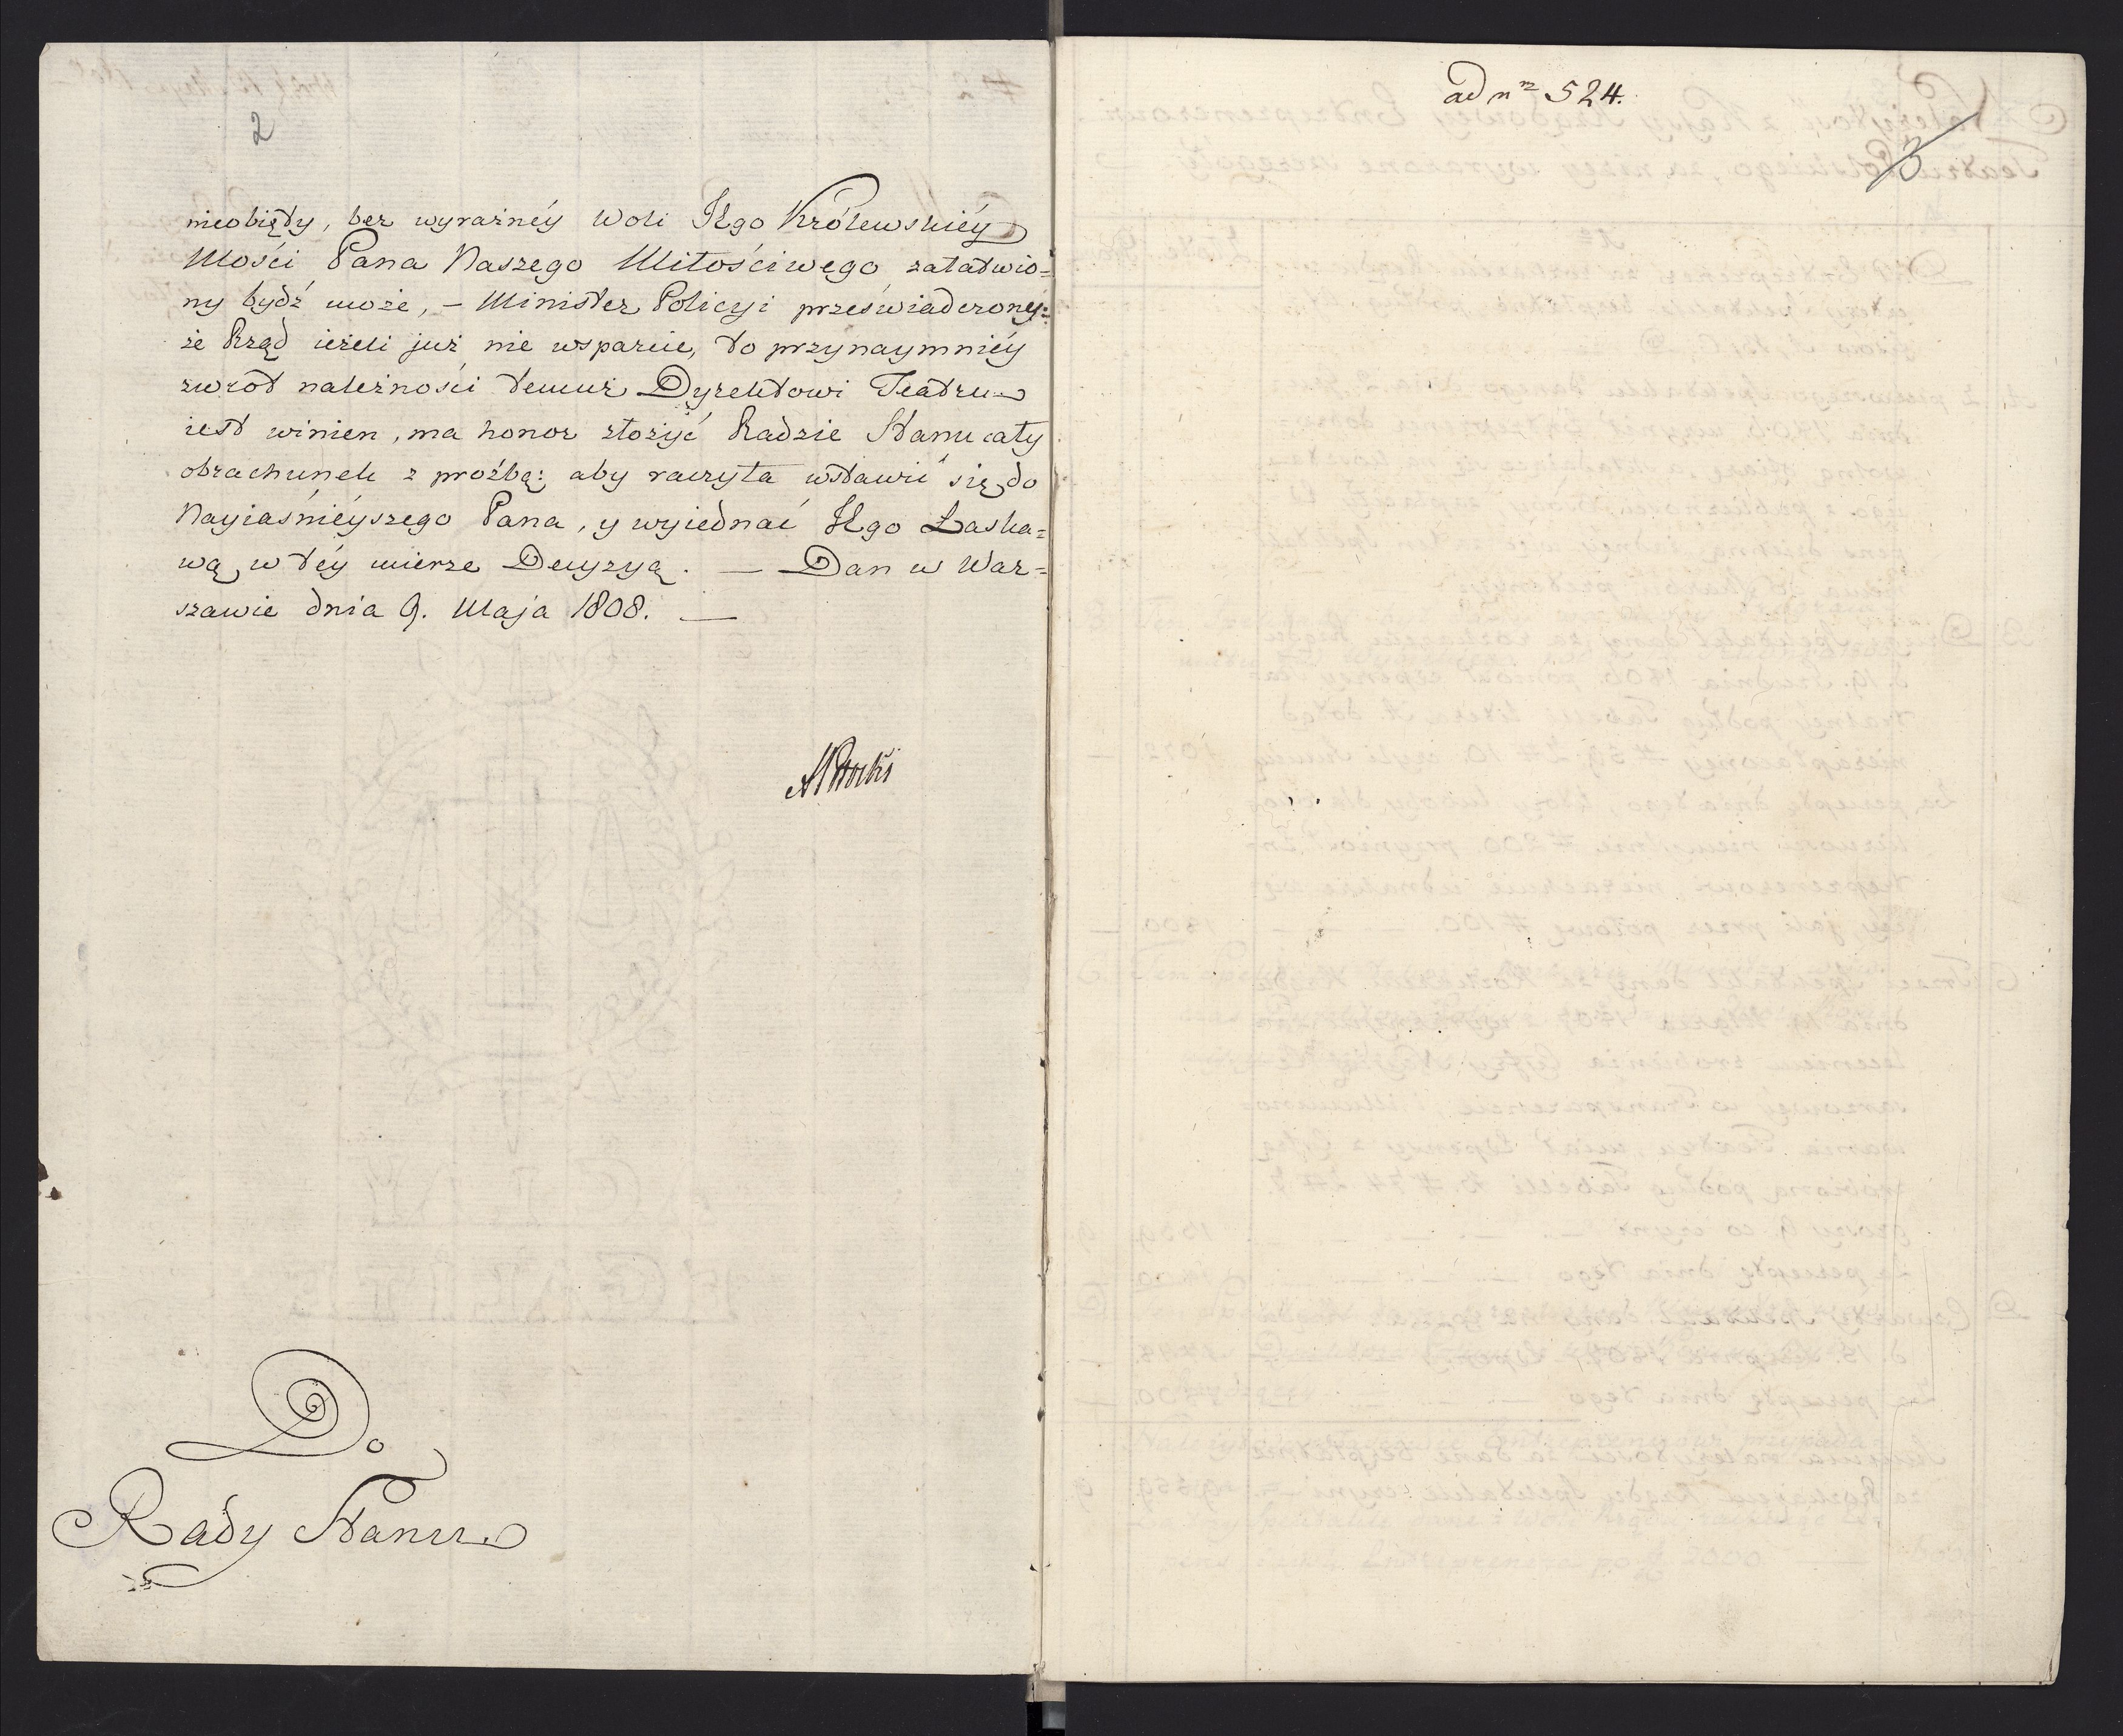 2
nieobięty, bez wyraźnéy woli JKgo Królewskiéy
Mości Pana Naszego Miłościwego załatwio=
ny bydź może, — Minister Policyi przeświadczony:
że Rząd ieżeli już nie wsparcie, to przynaymniéy
zwrot należności temuż Dyrektowi Teatru
iest winien, ma honor złożyć Radzie Stanu cały
obrachunek z proźbą: aby raczyła wstawić się do
Nayiaśnieyszego Pana, y wyiednać JKgo Łaska=
wą w téy mierze Decyzyą. — Dan w War=
szawie dnia 9. Maja 1808. —
APotocki
Do
Rady Stanu.
ad nr̲m̲ 524.
3